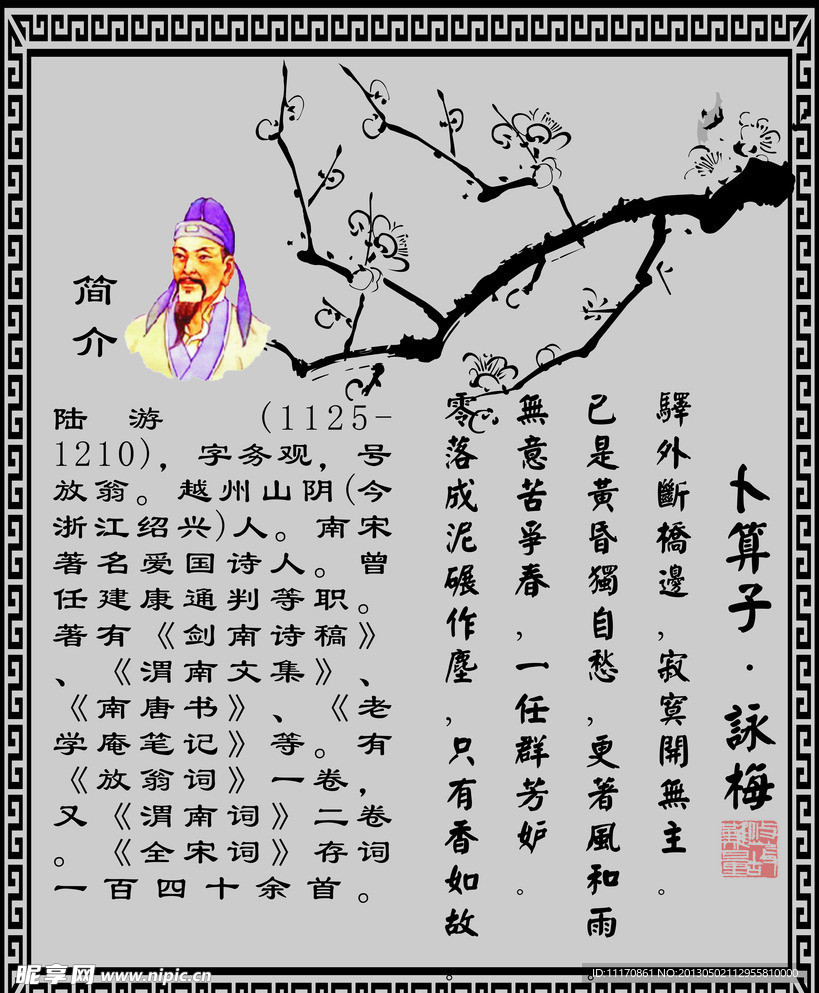 卜算子·詠梅
驛外斷橋邊,寂寞開無主。
已是黃昏獨自愁,更著風和雨。
無意苦爭春,一任群芳妒。
零落成泥碾作塵,只有香如故。
简
介
陆游(1125-
1210),字务观,号
放翁。越州山阴(今
浙江绍兴)人。南宋
著名爱国诗人。曾
任建康通判等职。
著有《剑南诗稿》
、《渭南文集》、
《南唐书》、《老
学庵笔记》等。有
《放翁词》一卷,
又《渭南词》二卷
。《全宋词》存词
一百四十余首。
昵享网 www.nipic.cn
ID:11170861 NO:20130502112955810000